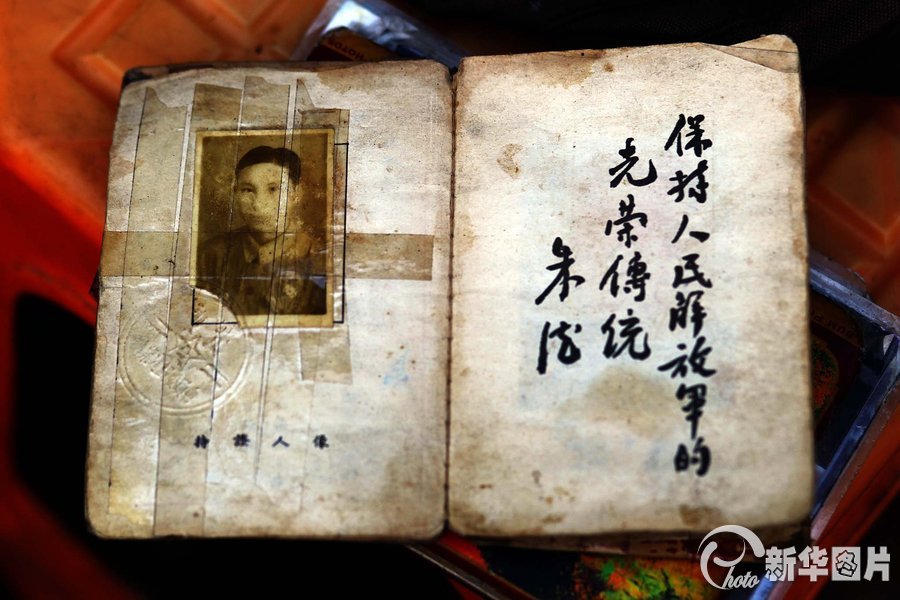 持證人像
保持人民解放軍的
光榮傳統
朱德
Photo 新华图片